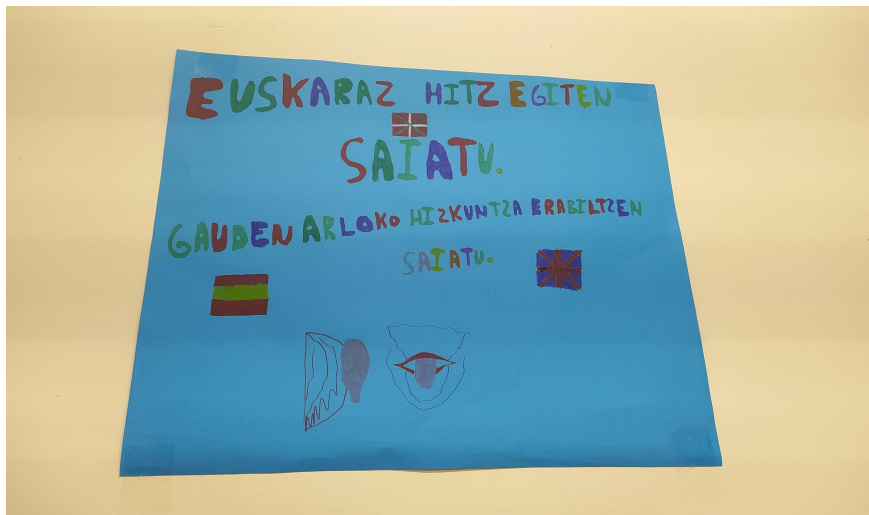 EUSKARAZ HITZ EGITEN
SAIATU.
GAUDEN ARLOKO HIZKUNTZA ERABILTZEN
SAIATU.